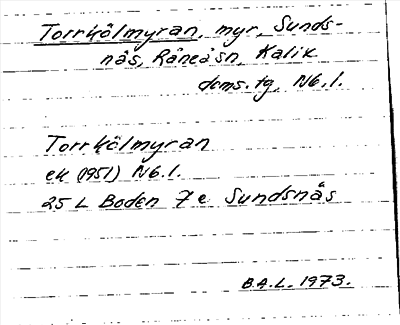 Torrkölmyran, myr, Sunds-
näs, Råneå sn, Kalix
doms. tg, Nb.l.
Torrkölmyran
ek (1951) Nb.l.
25 L Boden 7 e Sundsnäs
B.A.L. 1973.